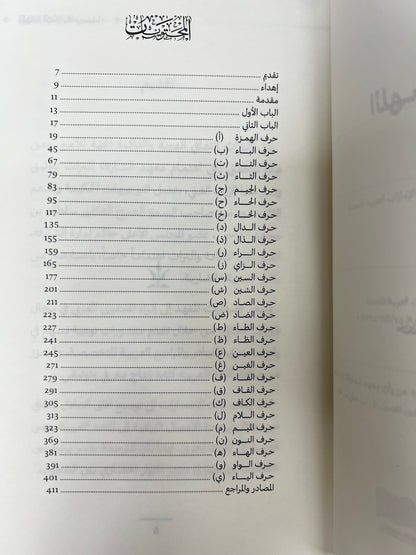 المحتويات
تقديم 7
إهداء 9
مقدمة 11
الباب الأول 13
الباب الثاني 17
حرف الهمزة (أ) 19
حرف البـاء (ب) 45
حرف التـاء (ت) 67
حرف الثـاء (ث) 79
حرف الجيـم (ج) 83
حرف الحـاء (ح) 95
حرف الخـاء (خ) 117
حرف الـدال (د) 135
حرف الـذال (ذ) 155
حرف الـراء (ر) 159
حرف الـزاي (ز) 165
حرف السين (س) 177
حرف الشين (ش) 201
حرف الصـاد (ص) 211
حرف الضـاد (ض) 223
حرف الطـاء (ط) 227
حرف الظـاء (ظ) 241
حرف العيـن (ع) 245
حرف الغيـن (غ) 271
حرف الفـاء (ف) 279
حرف القـاف (ق) 291
حرف الكـاف (ك) 305
حرف الـلام (ل) 313
حرف الميـم (م) 323
حرف النـون (ن) 369
حرف الهـاء (ه) 381
حرف الـواو (و) 391
حرف اليـاء (ي) 401
المصادر والمراجع 411